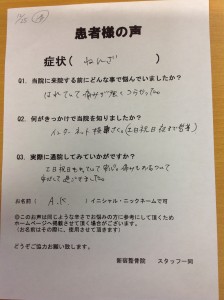 患者様の声
症状( ねんざ )
Q1. 当院に来院する前にどんな事で悩んでいましたか？
はれていて痛みが強くつらかった。
Q2. 何がきっかけで当院を知りましたか？
インターネット検索 (土日祝日夜も営業)
Q3. 実際に通院してみていかがですか？
土日祝日もやっていて
お名前( A.K )イニシャル・ニックネームで可
※このお声は同じような辛さでお悩みの方に参考にして頂くため
ホームページへ掲載させて頂く場合がございます。
(お名前はその際に、使用させて頂きます)
どうぞご協力お願い致します。
整骨院 スタッフ一同